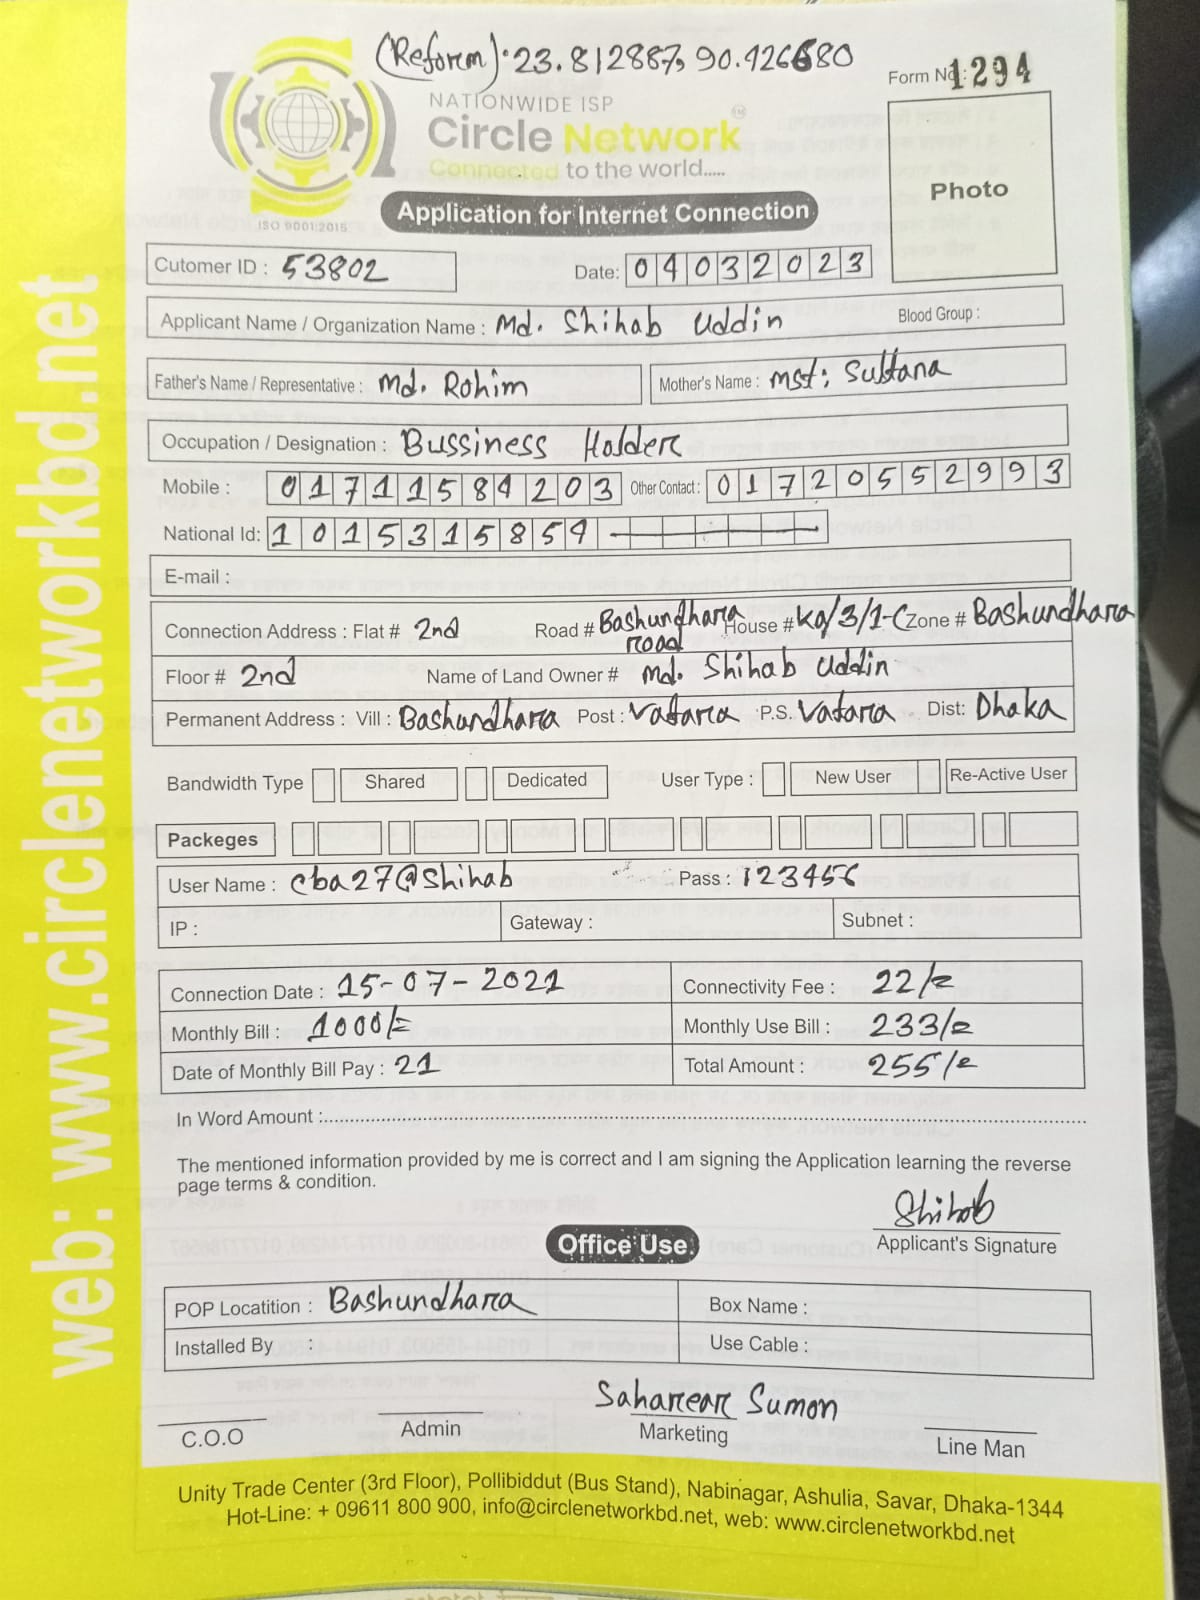 (Reform): 23.812887, 90.426680
Form No: 1294
NATIONWIDE ISP
Circle Network
Connected to the world.....
ISO 9001:2015
Photo
Application for Internet Connection
Cutomer ID : 53802
Date: 04032023
Applicant Name / Organization Name : Md. Shihab Uddin Blood Group :
Father's Name / Representative : Md. Rohim Mother's Name : Mst: Sultana
Occupation / Designation : Bussiness Holder
Mobile : 01711584203 Other Contact : 01720552993
National Id: 1015315854
E-mail :
Connection Address : Flat # 2nd Road # Bashundhara road House # Ka/3/1-C Zone # Bashundhara
Floor # 2nd Name of Land Owner # Md. Shihab Uddin
Permanent Address : Vill : Bashundhara Post : Vatara P.S. Vatara Dist: Dhaka
Bandwidth Type Shared Dedicated User Type : New User Re-Active User
Packeges
User Name : cba27@Shihab Pass : 123456
IP : Gateway : Subnet :
Connection Date : 15-07-2021 Connectivity Fee : 22/=
Monthly Bill : 1000/= Monthly Use Bill : 233/=
Date of Monthly Bill Pay : 21 Total Amount : 255/=
In Word Amount :
The mentioned information provided by me is correct and I am signing the Application learning the reverse
page terms & condition.
Shihab
Applicant's Signature
Office Use:
POP Locatition : Bashundhara Box Name :
Installed By : Use Cable :
Saharear Sumon
C.O.O Admin Marketing Line Man
Unity Trade Center (3rd Floor), Pollibiddut (Bus Stand), Nabinagar, Ashulia, Savar, Dhaka-1344
Hot-Line: + 09611 800 900, info@circlenetworkbd.net, web: www.circlenetworkbd.net
web: www.circlenetworkbd.net